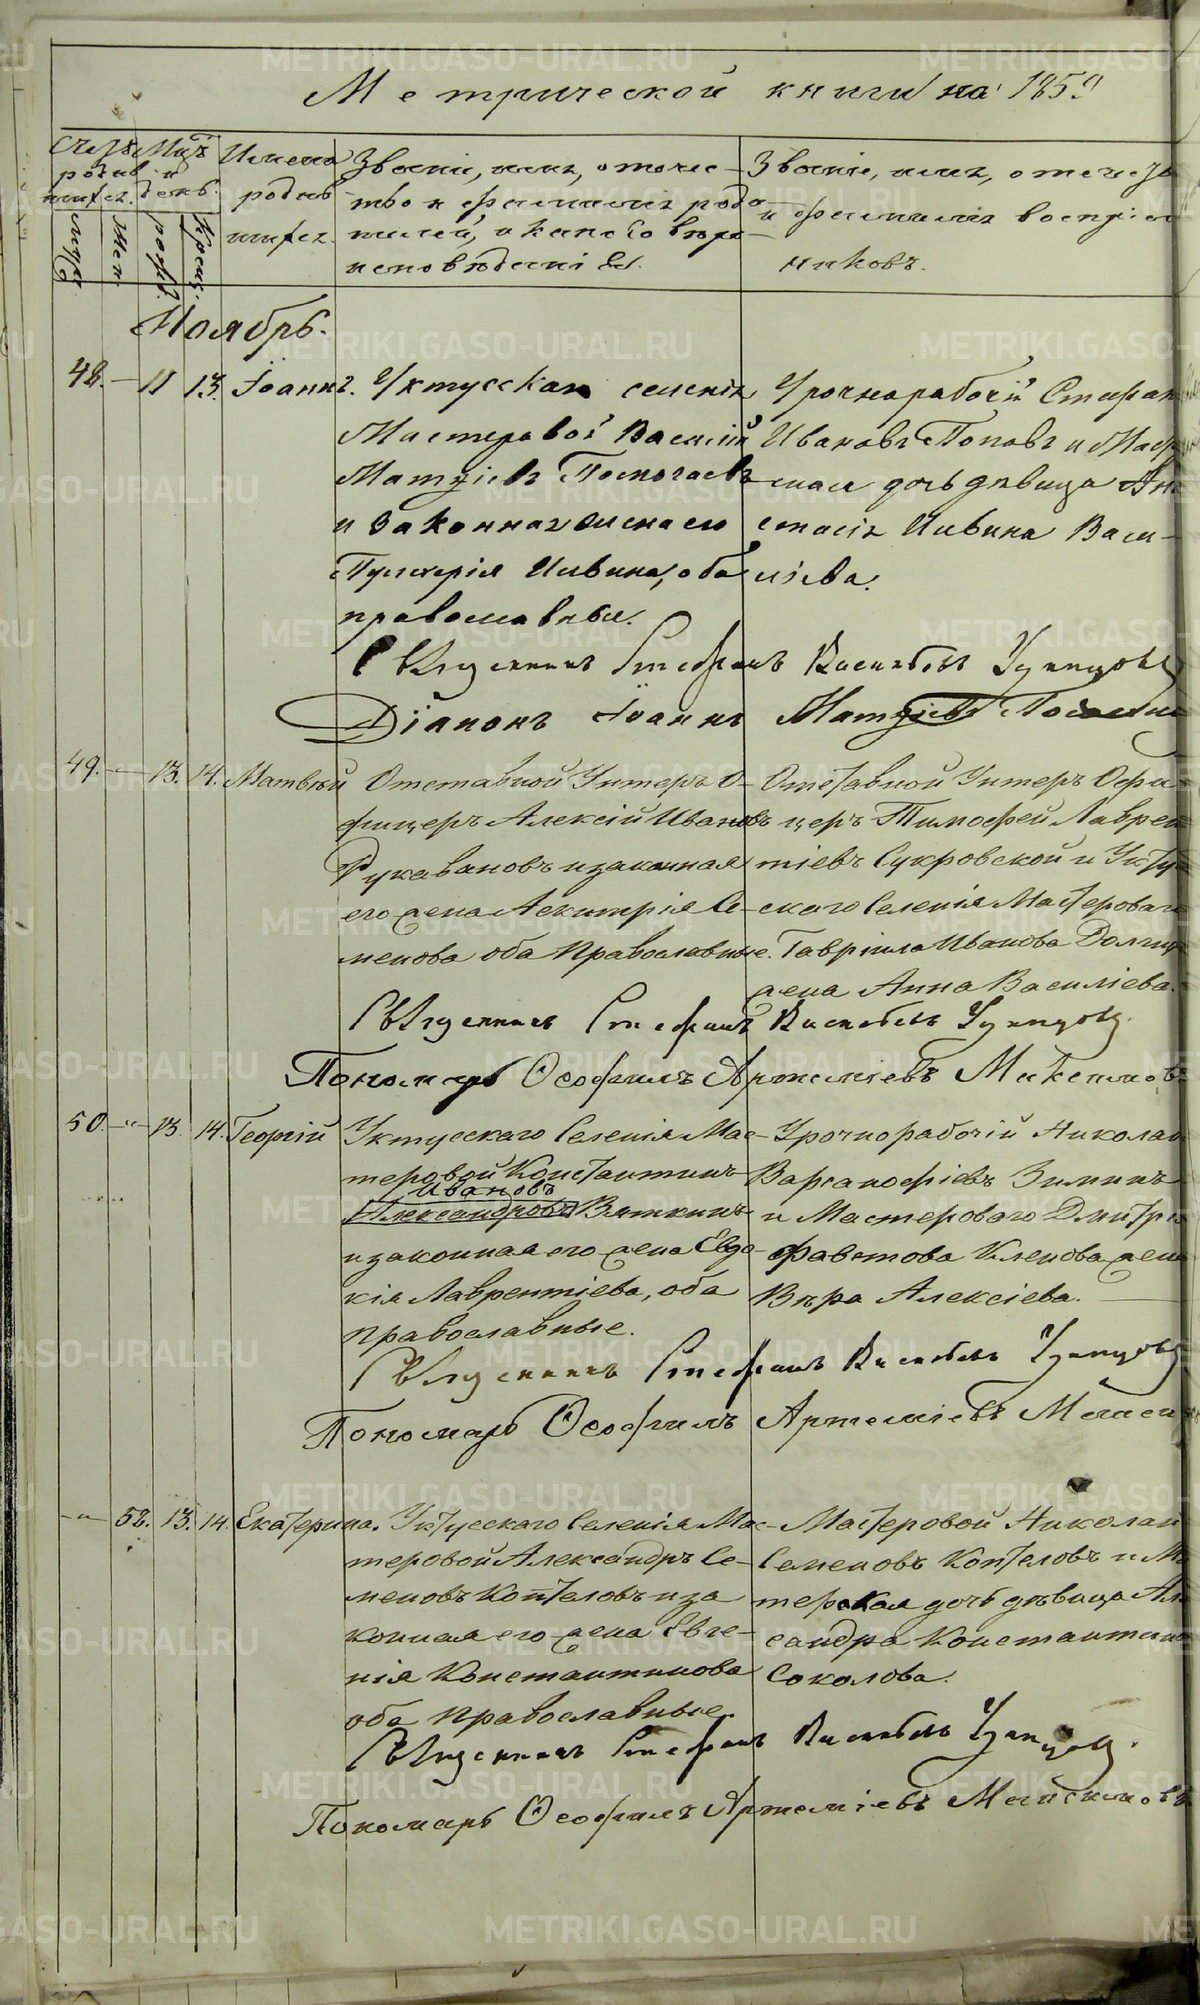 Метрической книги на 1859
Счетъ родив шихся.
Мцъ и день.
Имена родив шихся.
Званіе, имя, отчес-
тво и фамилія роди-
телей, и какого вѣро-
исповѣданія.
Званіе, имя, отчество
и фамилія воспріем
никовъ.
муж.
жен.
рожд.
крещ.
Ноябрь.
48. — 11 13. Іоаннъ.
Уктусскаго селенія
Мастеровой Василій
Матѳіевъ
и законная жена его
Пульхерія Ильина, оба
православные.
Урочнорабочій Стефан
Ивановъ Поповъ и Мас
дочь дѣвица Ан
стасія Ильина Васи-
ліева.
Священникъ Стефанъ Васильевъ
Діаконъ Іоаннъ Матѳіевъ
49. — 13. 14. Матвѣй
Отставной Унтеръ О-
фицеръ Алексій Ивановъ
Рукавановъ и законная
его жена Се-
менова оба Православные.
Отставной Унтеръ Офи
церъ Тимофей Лаврен
тіевъ Сукровской и Укту
скаго Селенія Мастероваго
Гавріила Иванова
жена Анна Василіева.
Священникъ Стефанъ Васильевъ
Пономарь Ѳеофилъ Артеміевъ
50 — " — 13. 14. Георгій
Уктусскаго Селенія Мас-
теровой Константинъ
Ивановъ
Александровъ Вяткинъ
и законная его жена Евдо-
кія Лаврентіева, оба
Православные.
Урочнорабочій Николай
Варсанофіевъ Зиминъ
и Мастероваго Дмитрі
Фавстова Кленова жена
Вѣра Алексіева.
Священникъ Стефанъ Васильевъ
Пономарь Ѳеофилъ Артеміевъ
— " — 52. 13. 14. Екатерина.
Уктусскаго Селенія Мас-
теровой Александръ Се-
меновъ Коптеловъ и за
конная его жена Евге-
нія Константинова
оба Православные.
Мастеровой Николай
Семеновъ Коптеловъ и М
терская дочь дѣвица Ал
сандра Константинова
Соколова.
Священникъ Стефанъ Васильевъ
Пономарь Ѳеофилъ Артеміевъ
METRIKI.GASO-URAL.RU